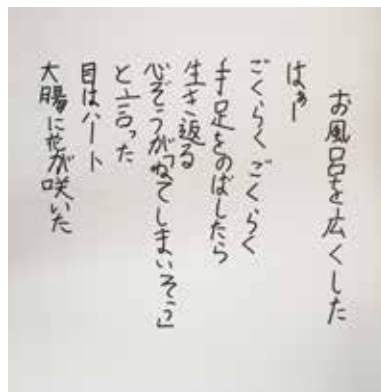 お風呂を広くした
はぁー
ごくらくごくらく
手足をのばしたら
生き返る
心ぞうが「ねてしまいそう」
と言った
目はハート
大腸に花が咲いた